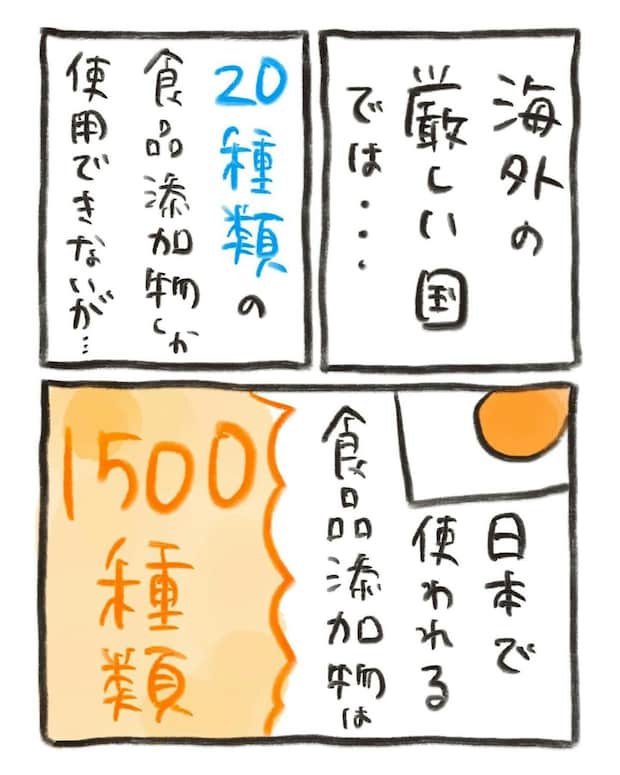 海外の
厳しい国
では・・・
20種類の
食品添加物しか
使用できないが…
日本で
使われる
食品添加物は
1500
種類